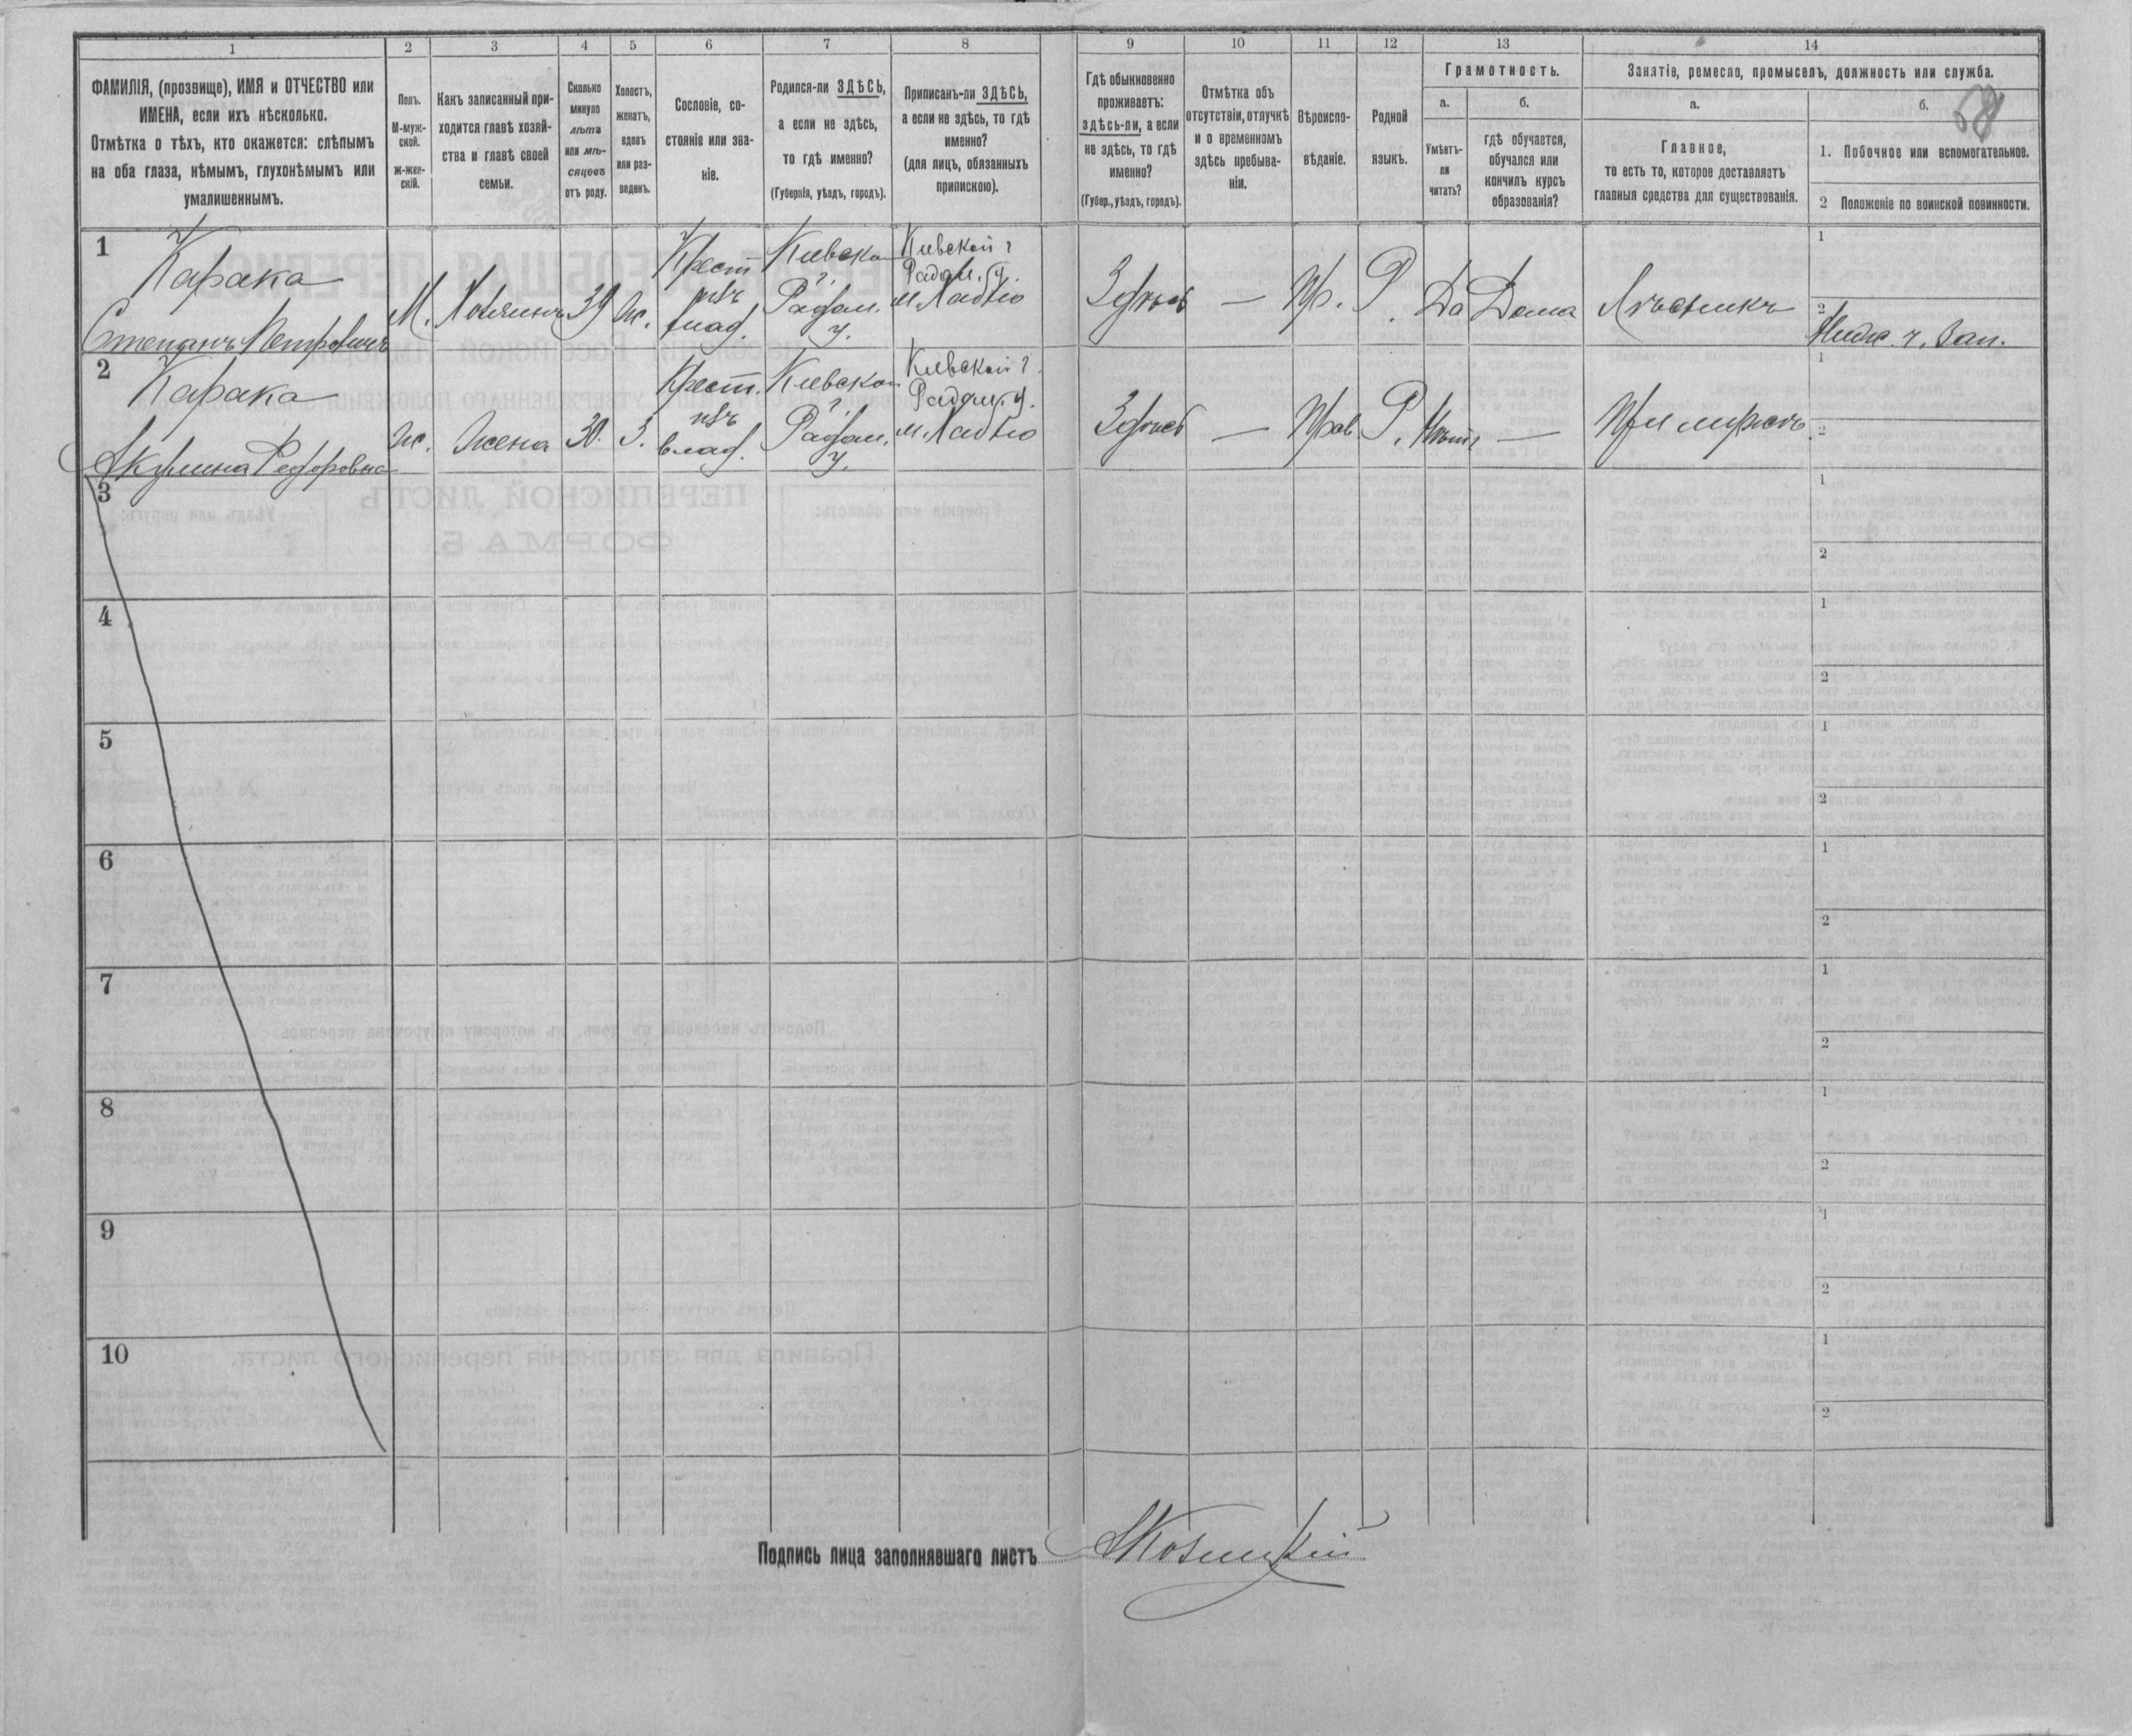 1 2 3 4 5 6 7 8 9 10 11 12 13 14
58
ФАМИЛІЯ, (прозвище), ИМЯ и ОТЧЕСТВО или
ИМЕНА, если ихъ нѣсколько.
Отмѣтка о тѣхъ, кто окажется: слѣпымъ
на оба глаза, нѣмымъ, глухонѣмымъ или
умалишеннымъ.
Полъ.
М-муж-
ской.
Ж-жен-
скій.
Какъ записанный при-
ходится главѣ хозяй-
ства и главѣ своей
семьи.
Сколько
минуло
лѣтъ
или мѣ-
сяцевъ
отъ роду.
Холостъ,
женатъ,
вдовъ
или раз-
веденъ.
Сословіе, со-
стояніе или зва-
ніе.
Родился-ли ЗДѢСЬ,
а если не здѣсь,
то гдѣ именно?
(Губернія, уѣздъ, городъ).
Приписанъ-ли ЗДѢСЬ,
а если не здѣсь, то гдѣ
именно?
(для лицъ, обязанныхъ
припискою).
Гдѣ обыкновенно
проживаетъ:
здѣсь-ли, а если
не здѣсь, то гдѣ
именно?
(Губер., уѣздъ, городъ).
Отмѣтка объ
отсутствіи, отлучкѣ
и о временномъ
здѣсь пребыва-
ніи.
Вѣроиспо-
вѣданіе.
Родной
языкъ.
Грамотность.
а.
Умѣетъ-
ли
читать?
б.
гдѣ обучается,
обучался или
кончилъ курсъ
образованія?
Занятіе, ремесло, промыселъ, должность или служба.
а.
Главное,
то есть то, которое доставляетъ
главныя средства для существованія.
б.
1. Побочное или вспомогательное.
2 Положеніе по воинской повинности.
1
Карака
Степанъ Петровичъ
М.
Хозяинъ
39
Ж.
Крест
изъ
влад.
Кіевской
г.
Радом.
у.
Кіевской г
Радом. у.
Здѣсь
—
Пр.
Р.
Да
Дома
Лѣсникъ
1
2
2
Карака
Акулина Федоровна
Ж.
Жена
30.
З.
Крест.
изъ
влад.
Кіевской
г.
Радом.
у.
Кіевской г.
Радом. у.
Здѣсь
—
Прав
Р.
Нѣтъ
—
При мужѣ
1
2
3
1
2
4
1
2
5
1
2
6
1
2
7
1
2
8
1
2
9
1
2
10
1
2
Подпись лица заполнявшаго листъ